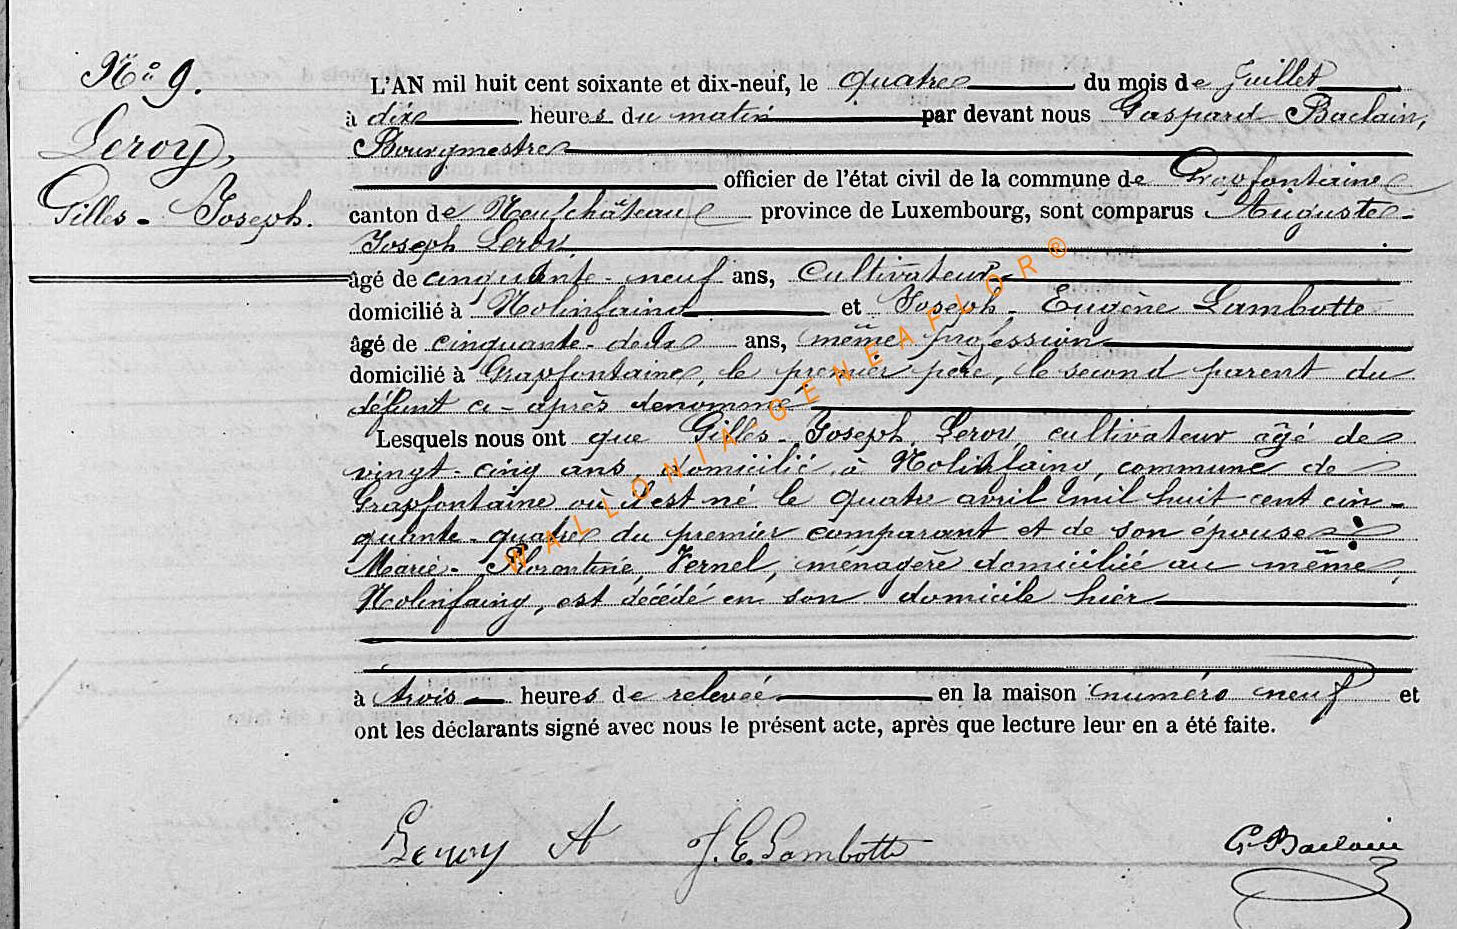 N° 9.
Leroy,
Gilles-Joseph.
L'AN mil huit cent soixante et dix-neuf, le quatre du mois de Juillet
à dix heures du matin par devant nous Gaspard Baclain,
Bourgmestre
officier de l'état civil de la commune de Grapfontaine
canton de Neufchâteau province de Luxembourg, sont comparus Auguste-
Joseph Leroy
âgé de cinquante-neuf ans, cultivateur
domicilié à Nolinfaing et Joseph-Eugène Lambotte
âgé de cinquante-deux ans, même profession
domicilié à Grapfontaine, le premier père, le second parent du
défunt ci-après dénommé
Lesquels nous ont que Gilles-Joseph Leroy cultivateur âgé de
vingt-cinq ans, domicilié à Nolinfaing, commune de
Grapfontaine où il est né le quatre avril mil huit cent cin-
quante-quatre du premier comparant et de son épouse
Marie-Florentine Vernel, ménagère domiciliée au même
Nolinfaing, est décédé en son domicile hier
à trois heures de relevée en la maison numéro neuf et
ont les déclarants signé avec nous le présent acte, après que lecture leur en a été faite.
Leroy A J. E. Lambotte G. Baclain
WALLONIA-GENEAFLOR®